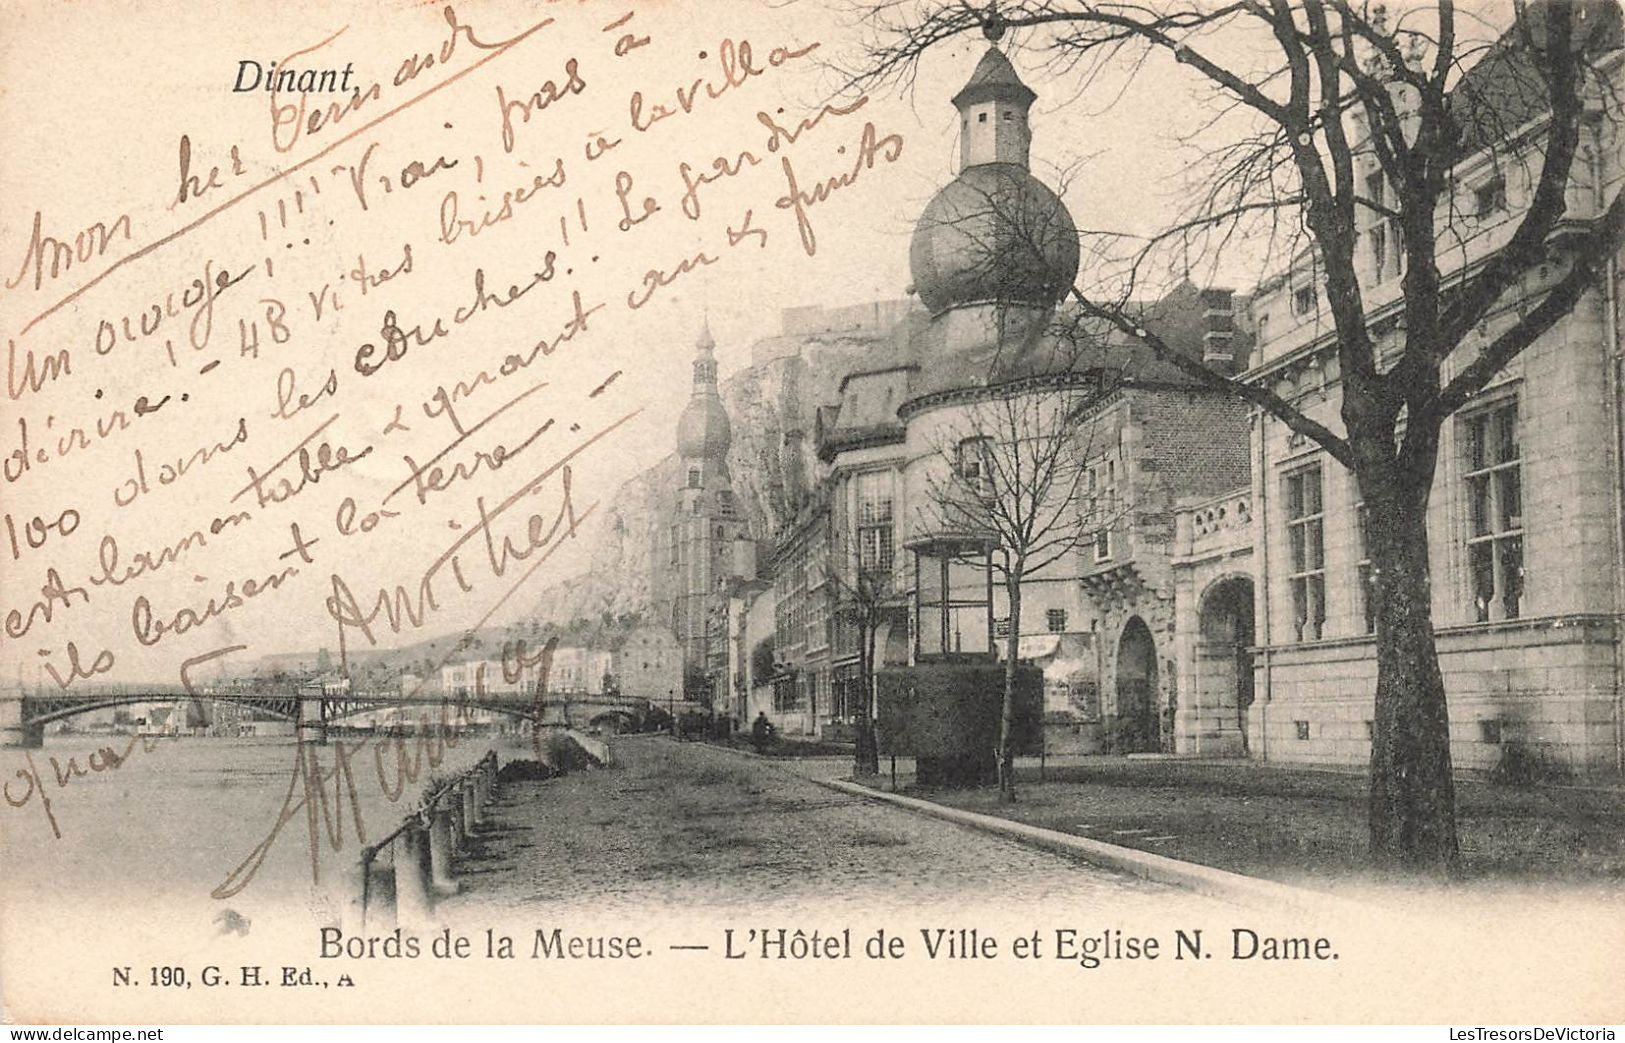 Dinant,
Mon cher Fernand
Un orage !!!! Vrai, pas à
décrire ! - 48 vitres brisées à la villa
100 dans les couches !! Le jardin
est lamentable & quant aux fruits
ils baisent la terre. -
quant
Bords de la Meuse. — L'Hôtel de Ville et Eglise N. Dame.
N. 190, G. H. Ed., A
LesTresorsDeVictoria